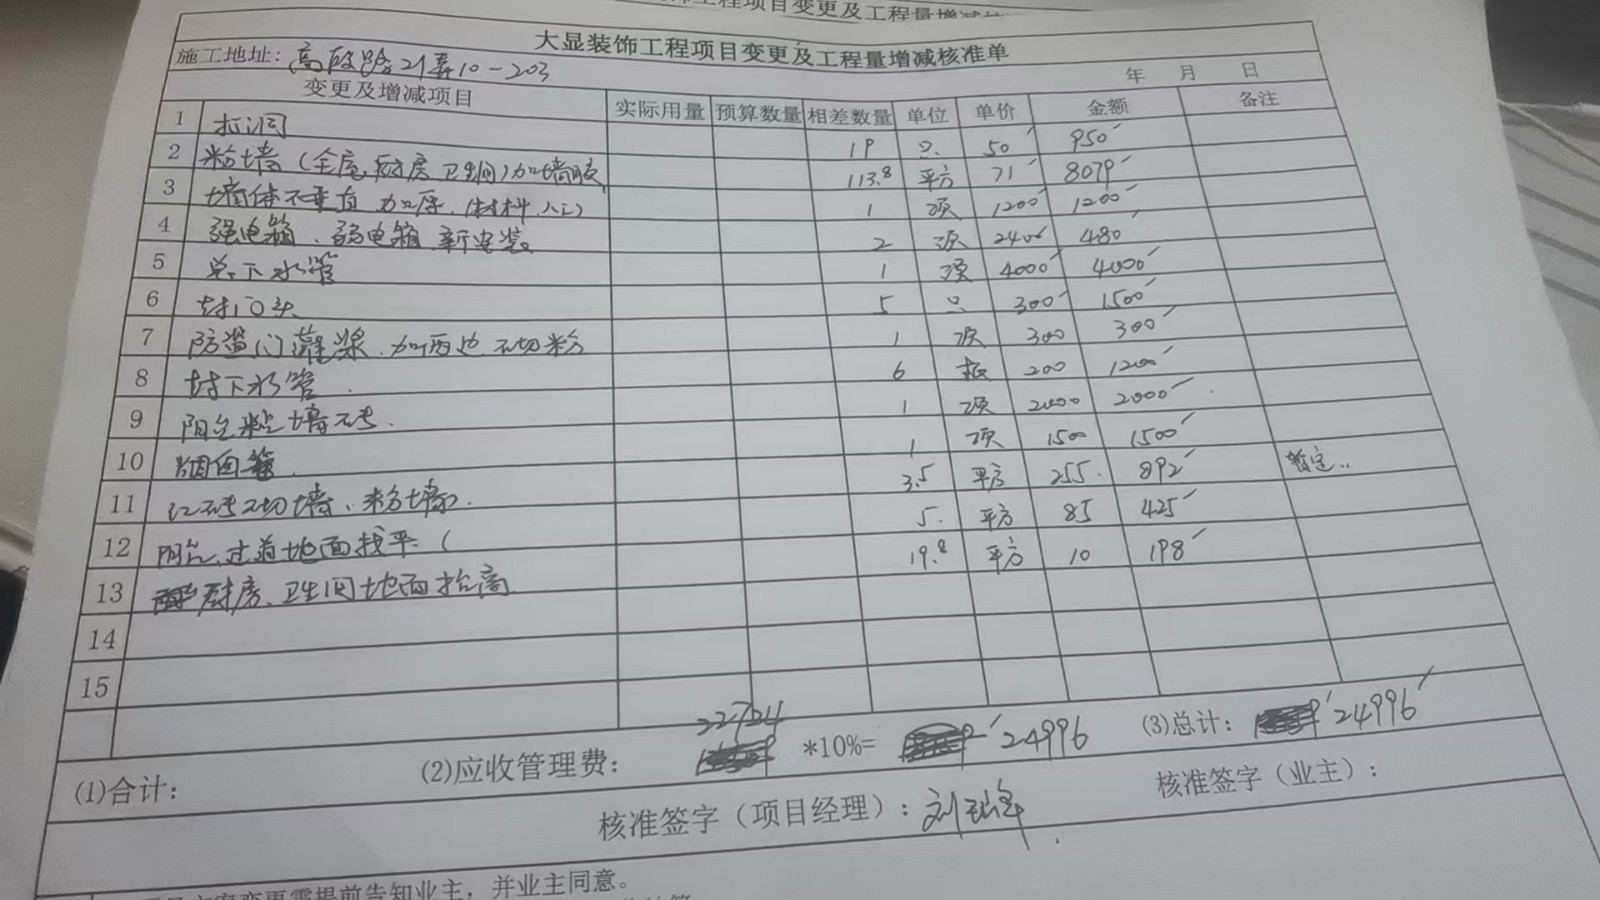 大显装饰工程项目变更及工程量增减核准单
施工地址: 高 路21弄10-203 年 月 日
变更及增减项目 实际用量 预算数量 相差数量 单位 单价 金额 备注
1 打洞 19 只 50 950
2 粉墙(全屋 厨房 卫生间)加墙 113.8 平方 71 8079
3 墙体不垂直 加厚 (材料、人工) 1 项 1200 1200
4 强电箱、弱电箱 新安装 2 项 240 480
5 总下水管 1 项 4000 4000
6 封门头 5 只 300 1500
7 防盗门灌浆、加两边 切粉 1 项 300 300
8 封下水管. 6 根 200 1200
9 阳台粘墙砖. 1 项 2000 2000
10 烟囱 1 项 1500 1500
11 红砖切墙、粉墙. 3.5 平方 255. 892 暂定..
12 阳台、过道地面找平.( 5. 平方 85 425
13 厨房、卫生间地面抬高 19.8 平方 10 198
14
15
(1)合计: (2)应收管理费: 22724 *10%= 24996 (3)总计: 24996
核准签字(项目经理): 刘 核准签字(业主):
变更需提前告知业主,并业主同意。